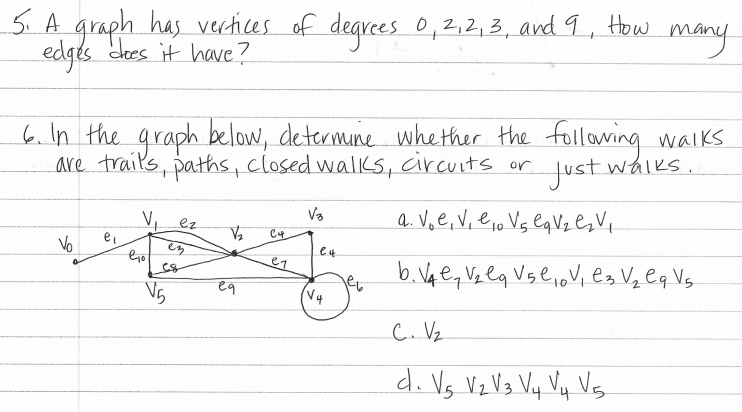 5. A graph has vertices of degrees 0, 2, 2, 3, and 9, How many
edges does it have?
6. In the graph below, determine whether the following walks
are trails, paths, closed walks, circuits or just walks.
V0 e1 V1 e2 V2 e4 V3
e10 e3 e8 e7 e4
V5 e9 V4 e6
a. V0 e1 V1 e10 V5 e9 V2 e2 V1
b. V4 e7 V2 e9 V5 e10 V1 e3 V2 e9 V5
c. V2
d. V5 V2 V3 V4 V4 V5